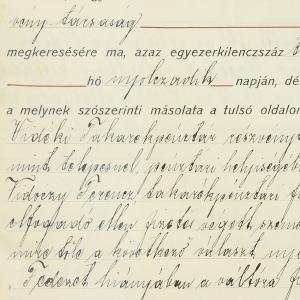 vény társaság
megkeresésére ma, azaz egyezerkilenczszáz
hó nyolczadik napján, dé
a melynek szószerinti másolata a tulsó oldalon
Vidéki Takarékpénztár részvény
mint telepesnél, pénztári helyiségeb
Vidoczy Ferencz takarékpénztári
elfogadó ellen fizetés végett szem
mire tőle a következő választ nye
"Fedezet hiányában a váltóra